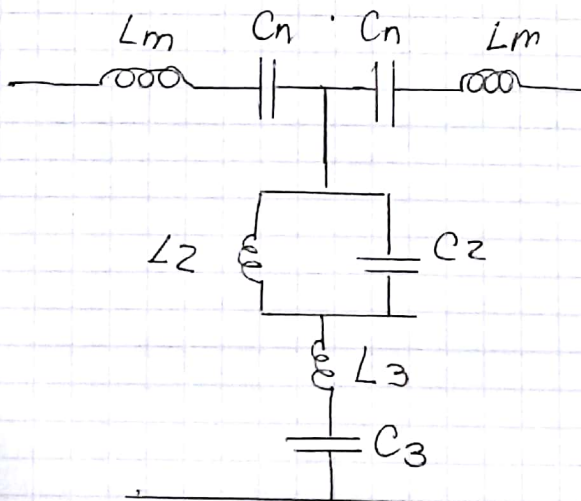 Lm Cn Cn Lm
L2 C2
L3
C3